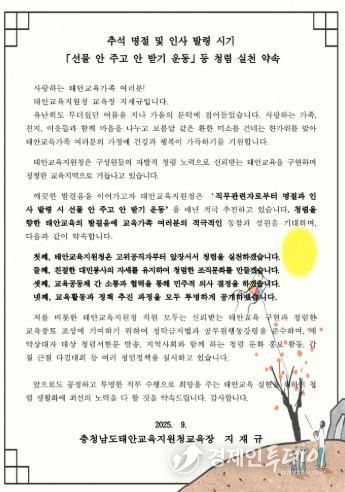 추석 명절 및 인사 발령 시기
「선물 안 주고 안 받기 운동」 등 청렴 실천 약속
사랑하는 태안교육가족 여러분!
태안교육지원청 교육장 지재규입니다.
유난히도 무더웠던 여름을 지나 가을의 문턱에 접어들었습니다. 사랑하는 가족,
친지, 이웃들과 함께 마음을 나누고 보름달 같은 환한 미소를 건네는 한가위를 맞아
태안교육가족 여러분의 가정에 건강과 행복이 가득하기를 기원합니다.
태안교육지원청은 구성원들의 자발적 청렴 노력으로 신뢰받는 태안교육을 구현하며
청정한 교육지역으로 거듭나고 있습니다.
깨끗한 발걸음을 이어가고자 태안교육지원청은 '직무관련자로부터 명절과 인
사 발령 시 선물 안 주고 안 받기 운동'을 매년 적극 추진하고 있습니다. 청렴을
향한 태안교육의 발걸음에 교육가족 여러분의 적극적인 동참과 성원을 기대하며,
다음과 같이 약속합니다.
첫째, 태안교육지원청은 고위공직자부터 앞장서서 청렴을 실천하겠습니다.
둘째, 친절한 대민봉사의 자세를 유지하여 청렴한 조직문화를 만들겠습니다.
셋째, 교육공동체 간 소통과 협력을 통해 민주적 의사 결정을 하겠습니다.
넷째, 교육활동과 정책 추진 과정을 모두 투명하게 공개하겠습니다.
저를 비롯한 태안교육지원청 직원 모두는 신뢰받는 태안교육 구현과 청렴한
교육풍토 조성에 기여하기 위하여 청탁금지법과 공무원행동강령을 준수하며, 계
약상대자 대상 청렴서한문 발송, 지역사회와 함께 하는 청렴 문화 홍보 활동, 갑
질 근절 다짐대회 등 여러 청렴정책을 실시하고 있습니다.
앞으로도 공정하고 투명한 직무 수행으로 희망을 주는 태안교육 실현을 위하여 청
렴 생활화에 최선의 노력을 다 할 것을 약속드립니다. 감사합니다.
2025. 9.
충청남도태안교육지원청교육장 지 재 규
경제인투데이